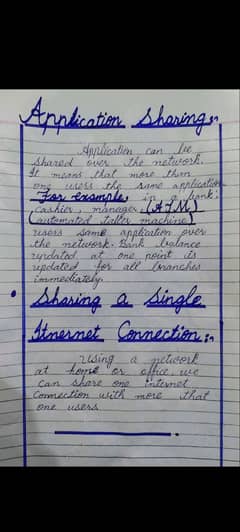 Application Sharing:-
Application can be
shared over the network.
It means that more than
one users the same application
For example, in a bank:
cashier, manager, (ATM)
(automated teller machine)
users same application over
the network. Bank balance
updated at one point its
updated for all branches
immediately.
• Sharing a Single
Itnernet Connection:-
Using a network
at home or office, we
can share one internet
connection with more that
one users